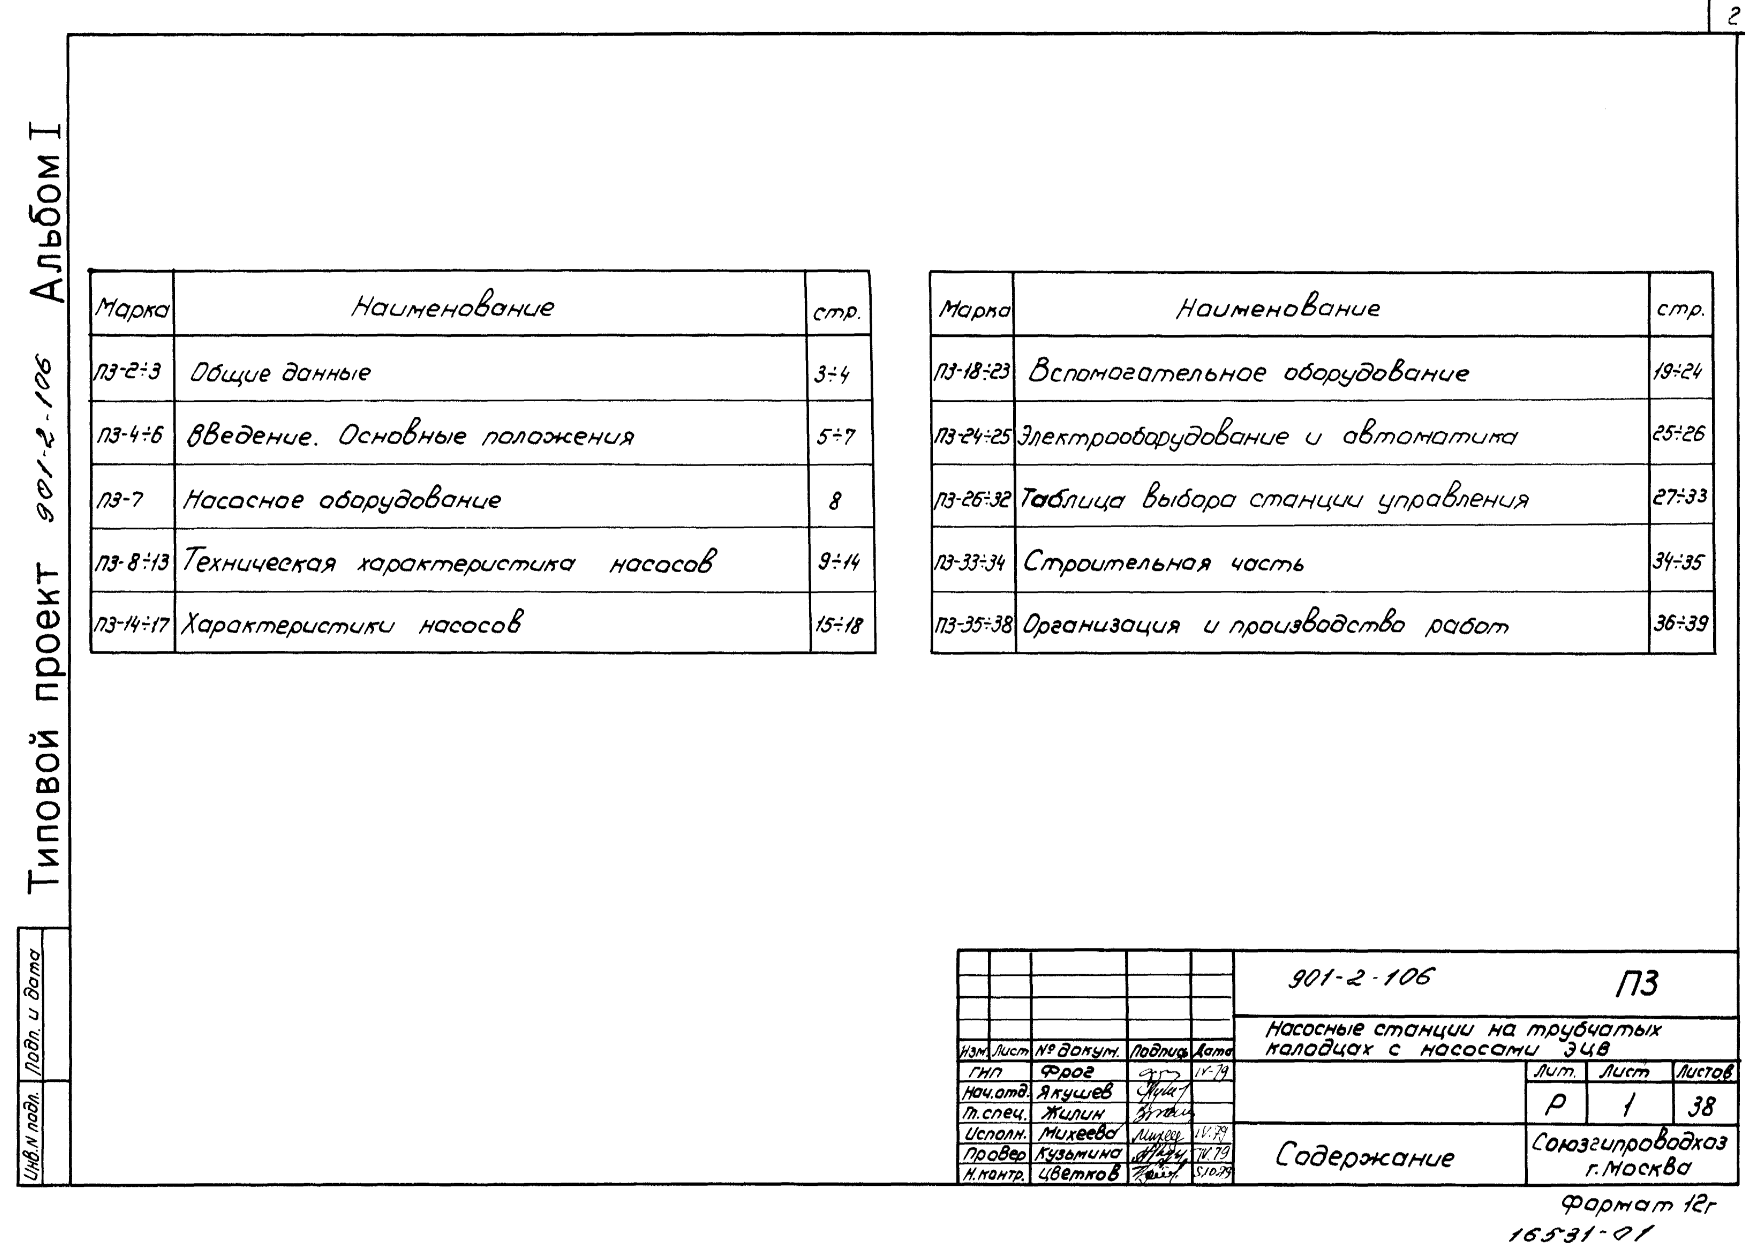 2
Типовой проект 901-2-106 Альбом I
Марка Наименование стр.
ПЗ-2÷3 Общие данные 3÷4
ПЗ-4÷6 Введение. Основные положения 5÷7
ПЗ-7 Насосное оборудование 8
ПЗ-8÷13 Техническая характеристика насосов 9÷14
ПЗ-14÷17 Характеристики насосов 15÷18
Марка Наименование стр.
ПЗ-18÷23 Вспомогательное оборудование 19÷24
ПЗ-24÷25 Электрооборудование и автоматика 25÷26
ПЗ-26÷32 Таблица выбора станции управления 27÷33
ПЗ-33÷34 Строительная часть 34÷35
ПЗ-35÷38 Организация и производство работ 36÷39
Инв.N подл. Подп. и дата
901-2-106 ПЗ
Насосные станции на трубчатых
колодцах с насосами ЭЦВ
Изм. Лист № докум. Подпись Дата
ГИП Фрог IV-79
Нач.отд. Якушев
Гл.спец. Жилин
Исполн. Михеева IV.79
Провер Кузьмина IV.79
Н.контр. Цветков 5.10.79
Лит. Лист Листов
Р 1 38
Содержание
Союзгипроводхоз
г. Москва
Формат 12г
16531-01